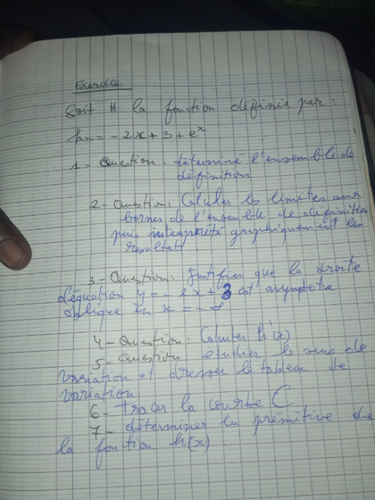 Exercice
Soit H la fonction définie par :
hx = -2x + 3 + eˣ
1- Question : déterminé l'ensemble de
définition
2- Question : Calculer les limites aux
bornes de l'ensemble de definition
puis interprété graphiquement les
resultat
3- Question : Justifier que la droite
d'équation y = -2x + 3 est asymptote
oblique en x = -∞
4- Question : Calculer h'(x)
5- Question etudier le sens de
variation et dresser le tableau de
variation
6- tracer la courbe C
7- déterminer la primitive de
la fonction h(x)